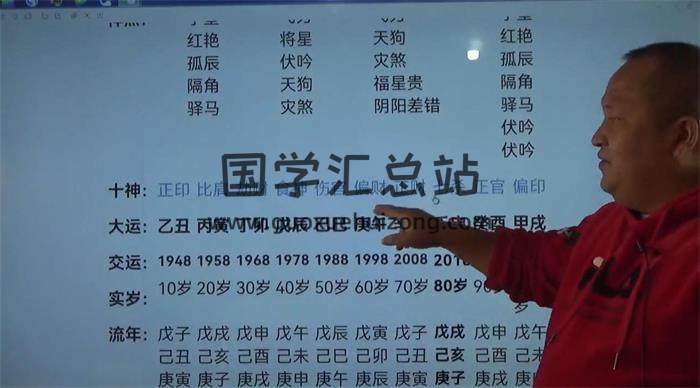 红艳 将星 天狗 红艳
孤辰 伏吟 灾煞 孤辰
隔角 天狗 福星贵 隔角
驿马 灾煞 阴阳差错 驿马
伏吟
伏吟
国学汇总站
十神: 正印 比肩 食神 伤官 偏财 正财 正官 偏印
大运: 乙丑 丙寅 丁卯 戊辰 己巳 庚午 癸酉 甲戌
交运: 1948 1958 1968 1978 1988 1998 2008
实岁: 10岁 20岁 30岁 40岁 50岁 60岁 70岁 80岁
流年: 戊子 戊戌 戊申 戊午 戊辰 戊寅 戊子 戊戌 戊申 戊午
己丑 己亥 己酉 己未 己巳 己卯 己丑 己亥 己酉 己未
庚寅 庚子 庚戌 庚申 庚午 庚辰 庚寅 庚子 庚戌 庚申